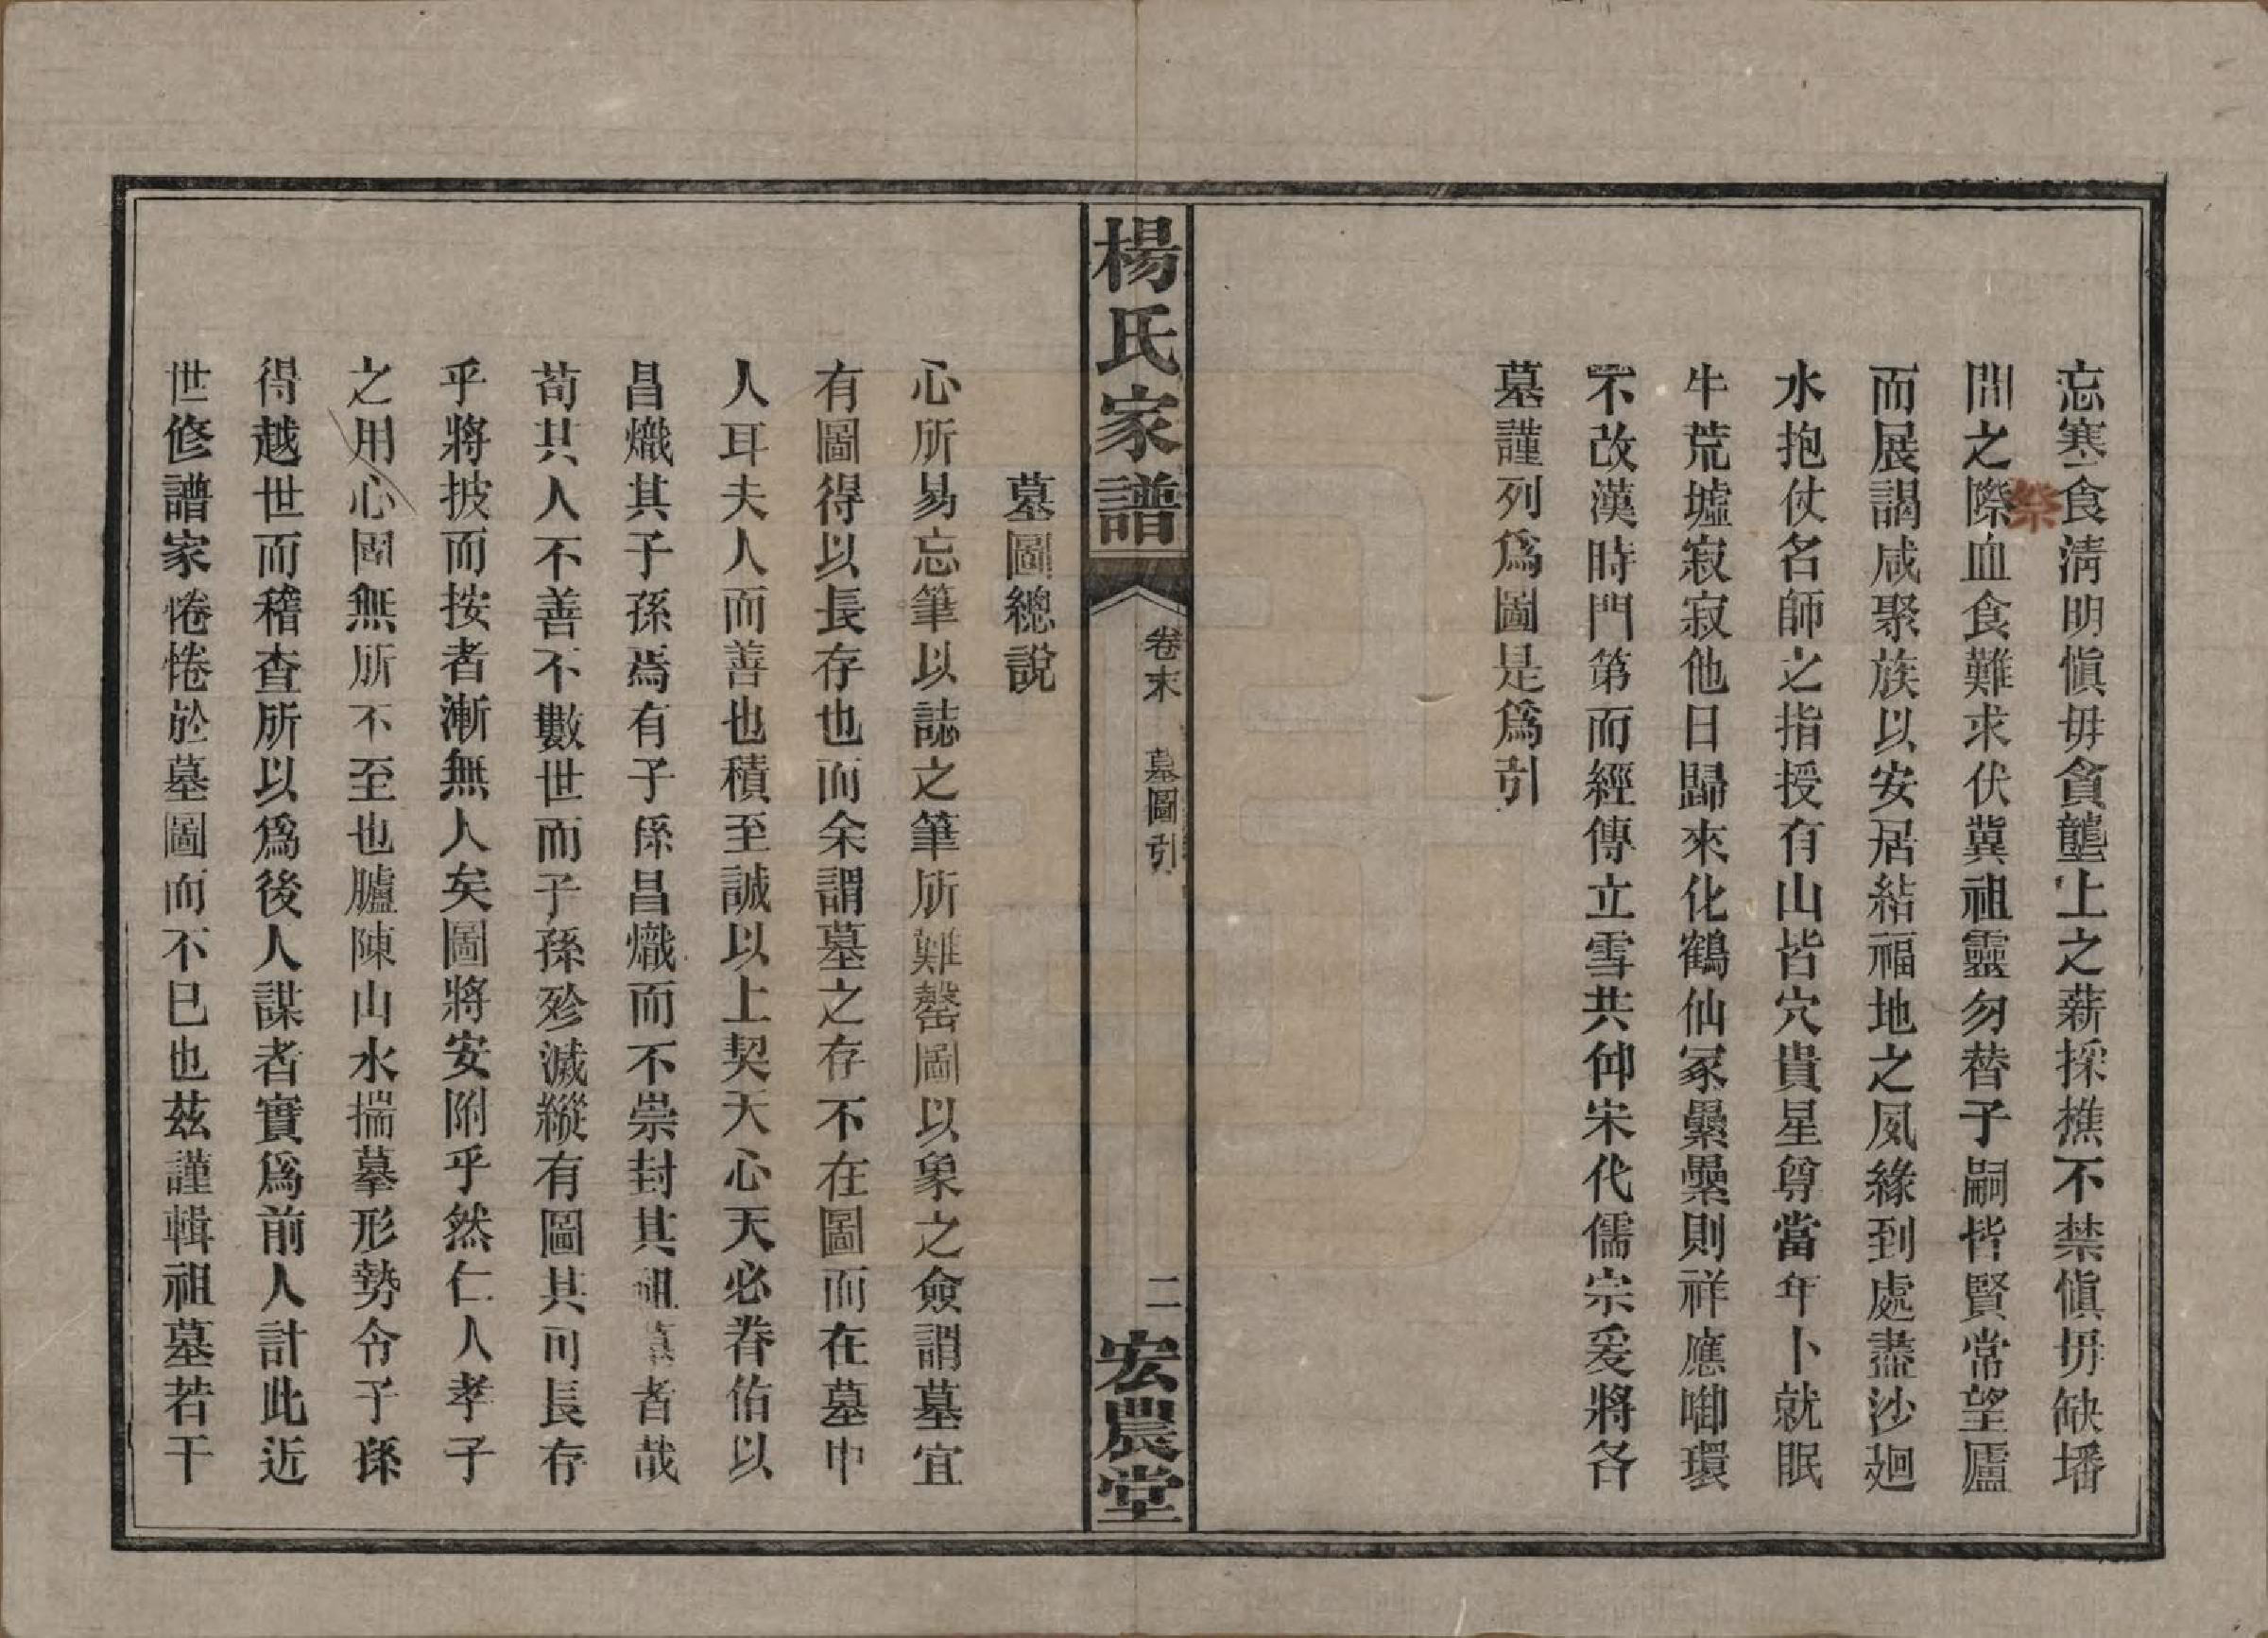 忘寒食淸明愼毋貪壟上之薪採樵不禁愼毋缺墦
間之際血食難求伏冀祖靈勿替子嗣皆賢常望廬
祭
而展謁咸聚族以安居結福地之夙緣到處盡沙廻
水抱仗名師之指授有山皆穴貴星尊當年卜就眠
牛荒墟寂寂他日歸來化鶴仙冢纍纍則祥應啣環
不改漢時門第而經傳立雪共仰宋代儒宗爰將各
墓謹列爲圖是爲引
楊氏家譜
卷末
墓圖引
二
宏農堂
墓圖總說
心所易忘筆以誌之筆所難罄圖以象之僉謂墓宜
有圖得以長存也而余謂墓之存不在圖而在墓中
人耳夫人而善也積至誠以上契天心天必眷佑以
昌熾其子孫焉有子係昌熾而不崇封其祖墓者哉
苟其人不善不數世而子孫殄滅縱有圖其可長存
乎將披而按者漸無人矣圖將安附乎然仁人孝子
之用心固無所不至也臚陳山水揣摹形勢令子孫
得越世而稽查所以爲後人謀者實爲前人計此近
世修譜家惓惓於墓圖而不已也茲謹輯祖墓若干